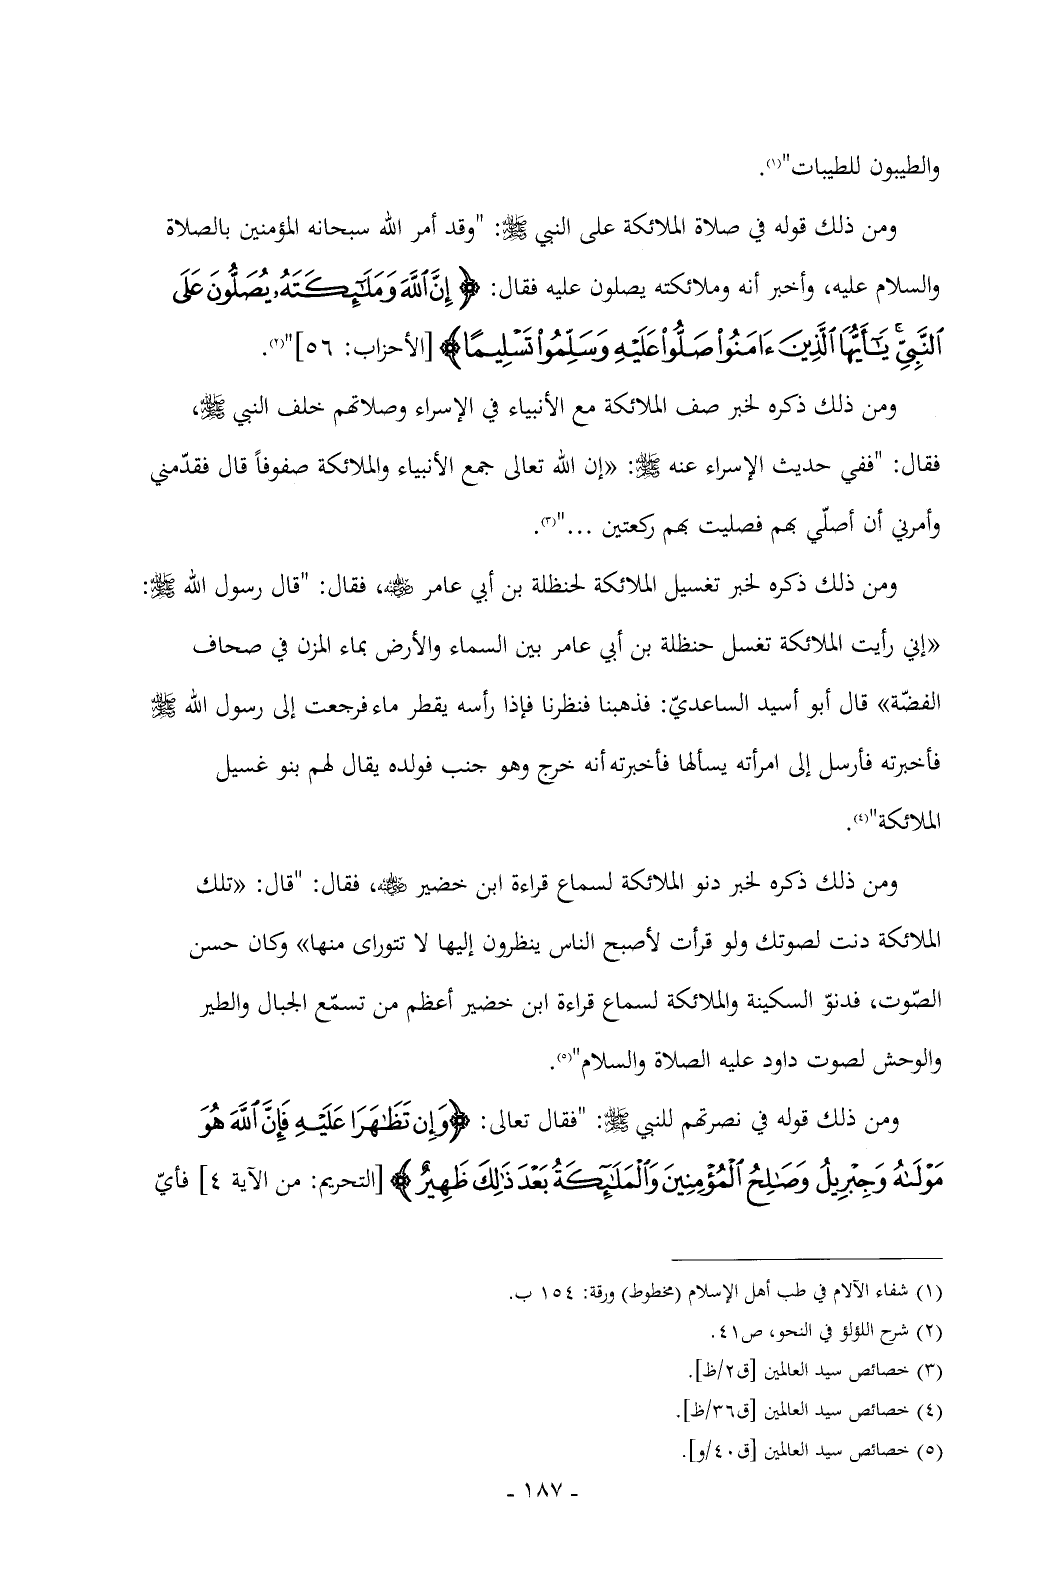 والطيبون للطيبات"(١).
ومن ذلك قوله في صلاة الملائكة على النبي ﷺ: "وقد أمر الله سبحانه المؤمنين بالصلاة
والسلام عليه، وأخبر أنه وملائكته يصلون عليه فقال: ﴿إِنَّ ٱللَّهَ وَمَلَٰٓئِكَتَهُۥ يُصَلُّونَ عَلَى
ٱلنَّبِيِّۚ يَٰٓأَيُّهَا ٱلَّذِينَ ءَامَنُواْ صَلُّواْ عَلَيْهِ وَسَلِّمُواْ تَسْلِيمًا﴾ [الأحزاب: ٥٦]"(٢).
ومن ذلك ذكره لخبر صف الملائكة مع الأنبياء في الإسراء وصلاتهم خلف النبي ﷺ،
فقال: "ففي حديث الإسراء عنه ﷺ: «إن الله تعالى جمع الأنبياء والملائكة صفوفاً قال فقدّمني
وأمرني أن أصلّي بهم فصليت بهم ركعتين ..."(٣).
ومن ذلك ذكره لخبر تغسيل الملائكة لحنظلة بن أبي عامر ﷺ، فقال: "قال رسول الله ﷺ:
«إني رأيت الملائكة تغسل حنظلة بن أبي عامر بين السماء والأرض بماء المزن في صحاف
الفضّة» قال أبو أسيد الساعديّ: فذهبنا فنظرنا فإذا رأسه يقطر ماء فرجعت إلى رسول الله ﷺ
فأخبرته فأرسل إلى امرأته يسألها فأخبرته أنه خرج وهو جنب فولده يقال لهم بنو غسيل
الملائكة"(٤).
ومن ذلك ذكره لخبر دنو الملائكة لسماع قراءة ابن خضير رضي الله عنه، فقال: "قال: «تلك
الملائكة دنت لصوتك ولو قرأت لأصبح الناس ينظرون إليها لا تتوراى منها» وكان حسن
الصّوت، فدنوّ السكينة والملائكة لسماع قراءة ابن خضير أعظم من تسمّع الجبال والطير
والوحش لصوت داود عليه الصلاة والسلام"(٥).
ومن ذلك قوله في نصرتهم للنبي ﷺ: "فقال تعالى: ﴿وَإِن تَظَٰهَرَا عَلَيْهِ فَإِنَّ ٱللَّهَ هُوَ
مَوْلَىٰهُ وَجِبْرِيلُ وَصَٰلِحُ ٱلْمُؤْمِنِينَ وَٱلْمَلَٰٓئِكَةُ بَعْدَ ذَٰلِكَ ظَهِيرٌ﴾ [التحريم: من الآية ٤] فأيّ
(١) شفاء الآلام في طب أهل الإسلام (مخطوط) ورقة: ١٥٤ ب.
(٢) شرح اللؤلؤ في النحو، ص٤١.
(٣) خصائص سيد العالمين [ق٢/ظ].
(٤) خصائص سيد العالمين [ق٣٦/ظ].
(٥) خصائص سيد العالمين [ق٤٠/و].
- ١٨٧ -